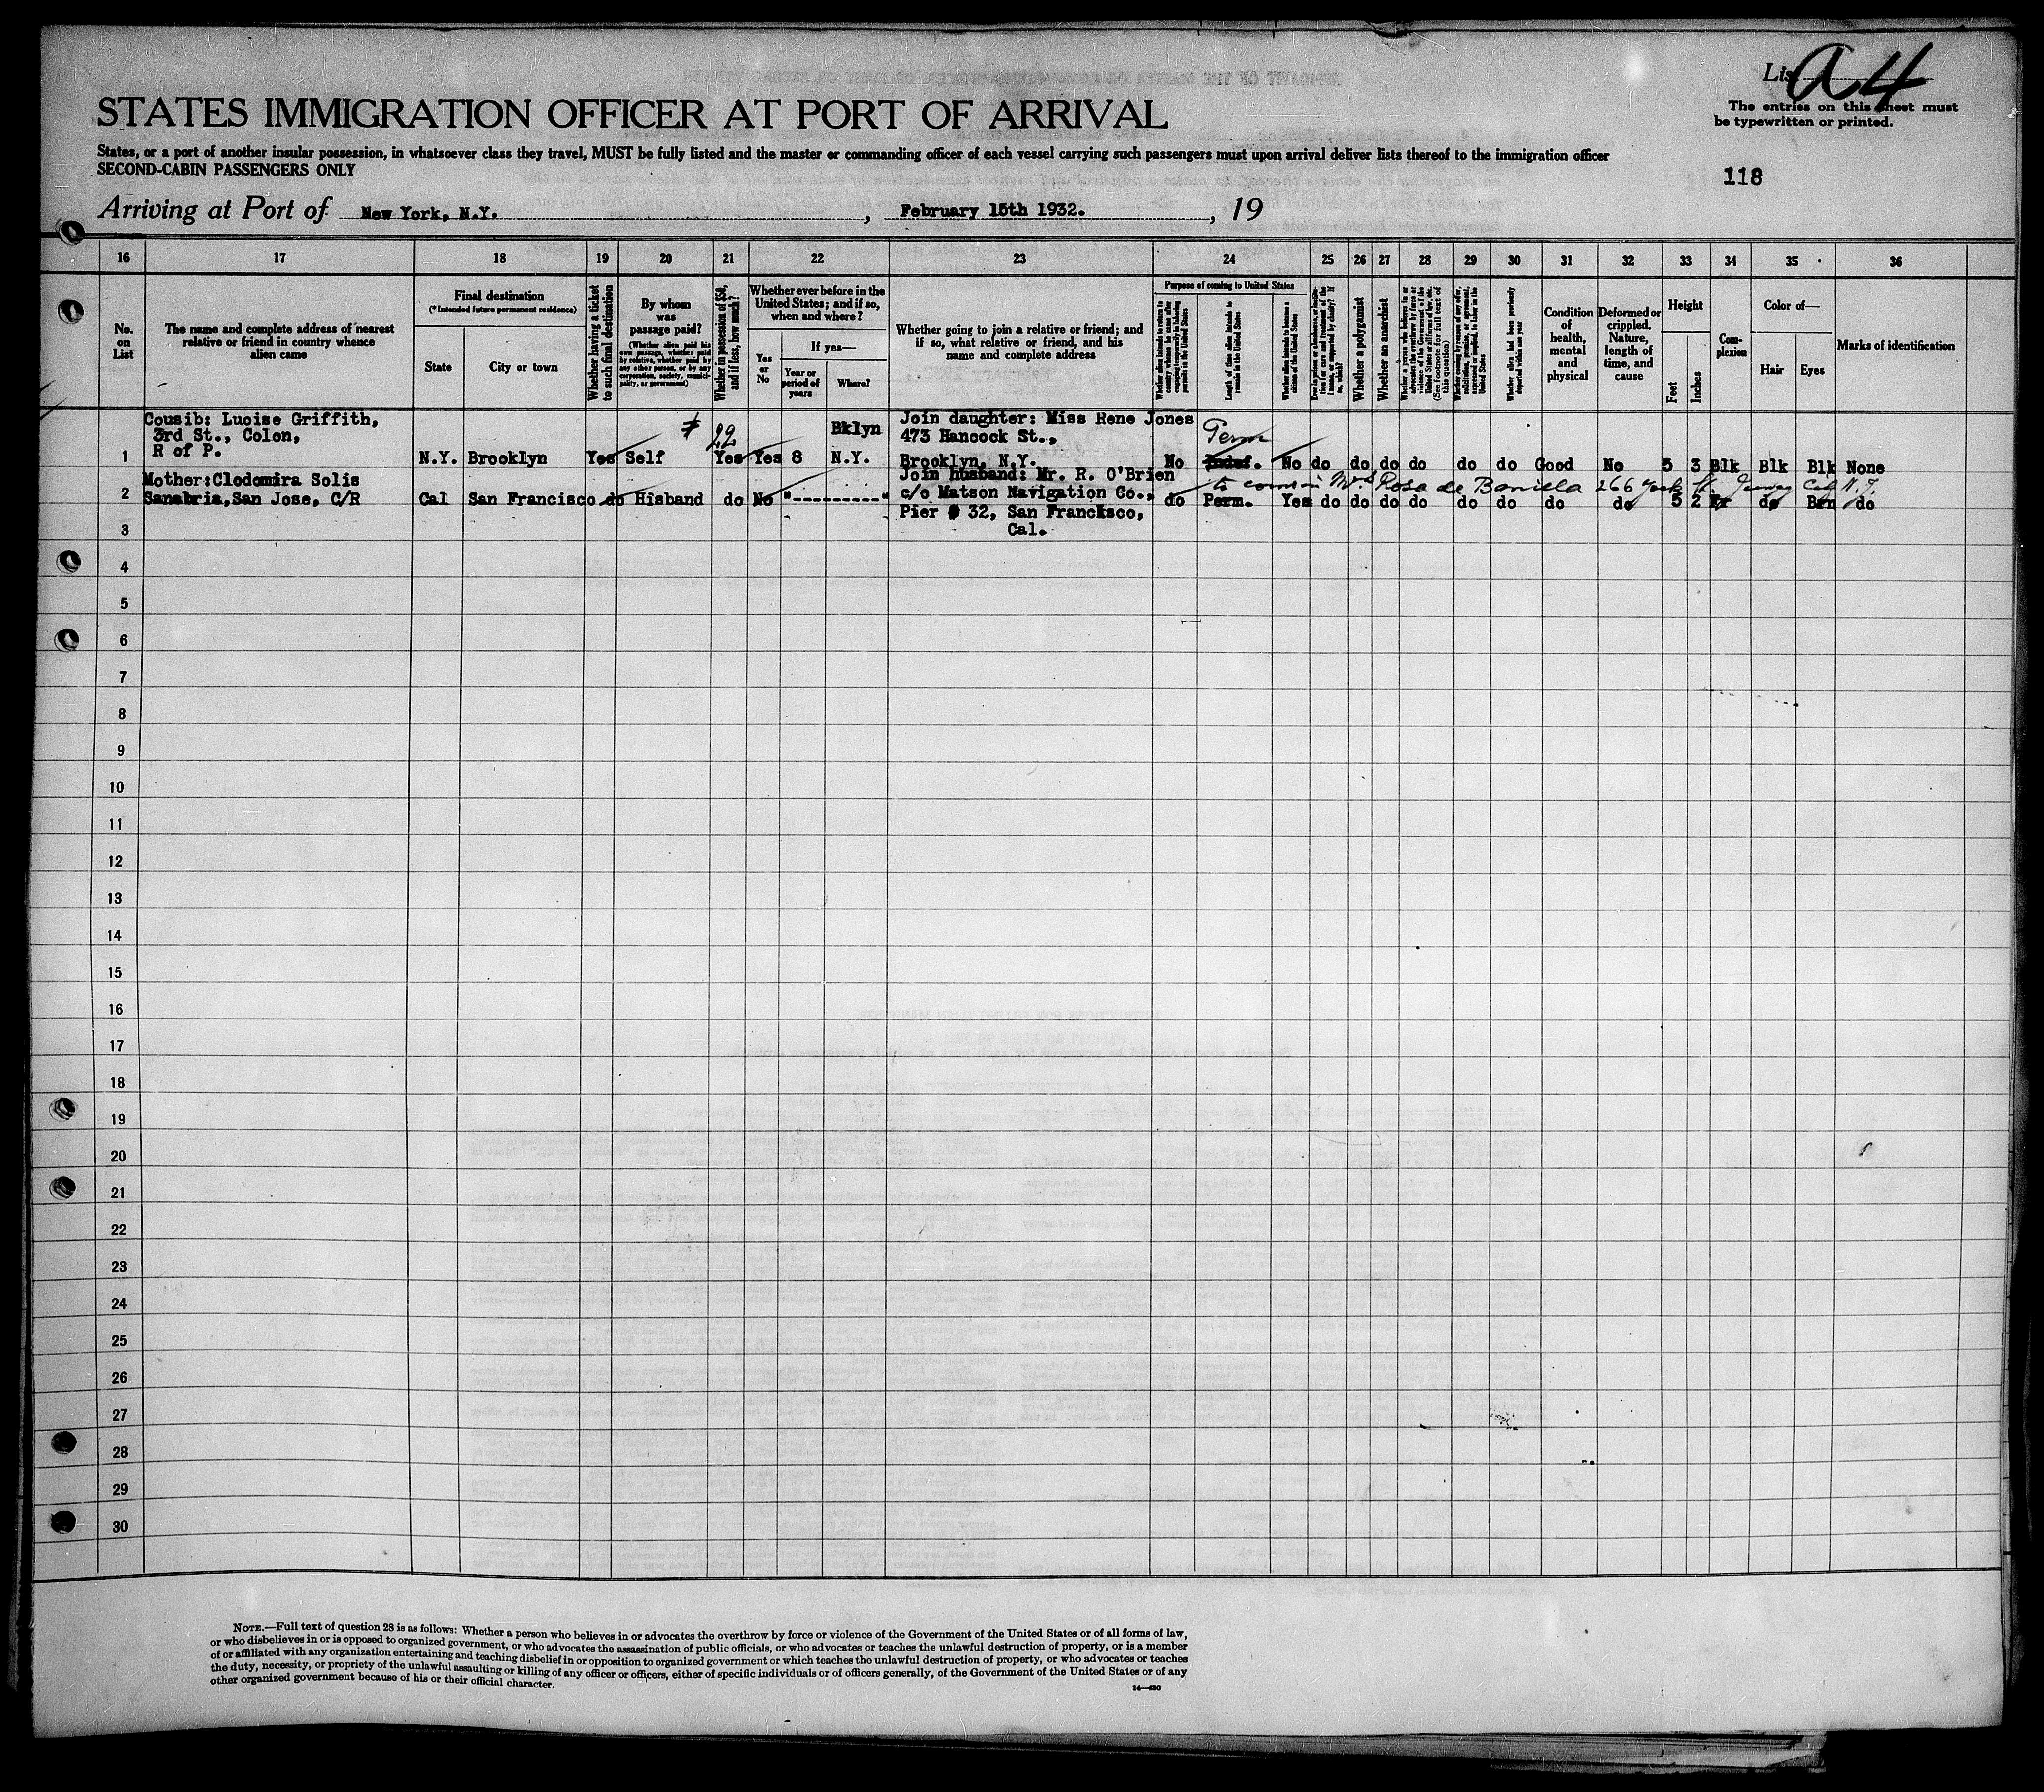 List A 4
The entries on this sheet must
be typewritten or printed.
STATES IMMIGRATION OFFICER AT PORT OF ARRIVAL
States, or a port of another insular possession, in whatsoever class they travel, MUST be fully listed and the master or commanding officer of each vessel carrying such passengers must upon arrival deliver lists thereof to the immigration officer
SECOND-CABIN PASSENGERS ONLY
118
Arriving at Port of New York, N.Y. , February 15th 1932. , 19
16 17 18 19 20 21 22 23 24 25 26 27 28 29 30 31 32 33 34 35 36
No.
on
List
The name and complete address of nearest
relative or friend in country whence
alien came
Final destination
(*Intended future permanent residence)
State
City or town
Whether having a ticket
to such final destination
By whom
was
passage paid?
(Whether alien paid his
own passage, whether paid
by relative, whether paid by
any other person, or by any
corporation, society, munici-
pality, or government)
Whether in possession of $50,
and if less, how much?
Whether ever before in the
United States; and if so,
when and where?
Yes
or
No
If yes—
Year or
period of
years
Where?
Whether going to join a relative or friend; and
if so, what relative or friend, and his
name and complete address
Purpose of coming to United States
Length of time alien intends to
remain in the United States
Whether alien intends to become a
citizen of the United States
Whether a polygamist
Whether an anarchist
(See footnote for full text of
this question)
Whether alien had been previously
deported within one year
Condition
of
health,
mental
and
physical
Deformed or
crippled.
Nature,
length of
time, and
cause
Height
Feet
Inches
Com-
plexion
Color of—
Hair
Eyes
Marks of identification
Cousib: Luoise Griffith,
3rd St., Colon,
R of P.
1 N.Y. Brooklyn Yes Self $ 22 Yes Yes 8 Bklyn
N.Y.
Join daughter: Miss Rene Jones
473 Hancock St.,
Brooklyn, N.Y.
No Perm Indef. No do do do do do do Good No 5 3 Blk Blk Blk None
Mother:Clodomira Solis
2 Sanabria,San Jose, C/R Cal San Francisco do Hisband do No "---------"
Join husband: Mr. R. O'Brien
c/o Matson Navigation Co.,
Pier # 32, San Francisco,
Cal.
to cousin Mrs Rosa de Bonilla 266 York St. Jersey City N.J.
do Perm. Yes do do do do do do do do 5 2 do Brn do
3
4
5
6
7
8
9
10
11
12
13
14
15
16
17
18
19
20
21
22
23
24
25
26
27
28
29
30
NOTE.—Full text of question 28 is as follows: Whether a person who believes in or advocates the overthrow by force or violence of the Government of the United States or of all forms of law,
or who disbelieves in or is opposed to organized government, or who advocates the assassination of public officials, or who advocates or teaches the unlawful destruction of property, or is a member
of or affiliated with any organization entertaining and teaching disbelief in or opposition to organized government or which teaches the unlawful destruction of property, or who advocates or teaches
the duty, necessity, or propriety of the unlawful assaulting or killing of any officer or officers, either of specific individuals or of officers generally, of the Government of the United States or of any
other organized government because of his or their official character.
14—430